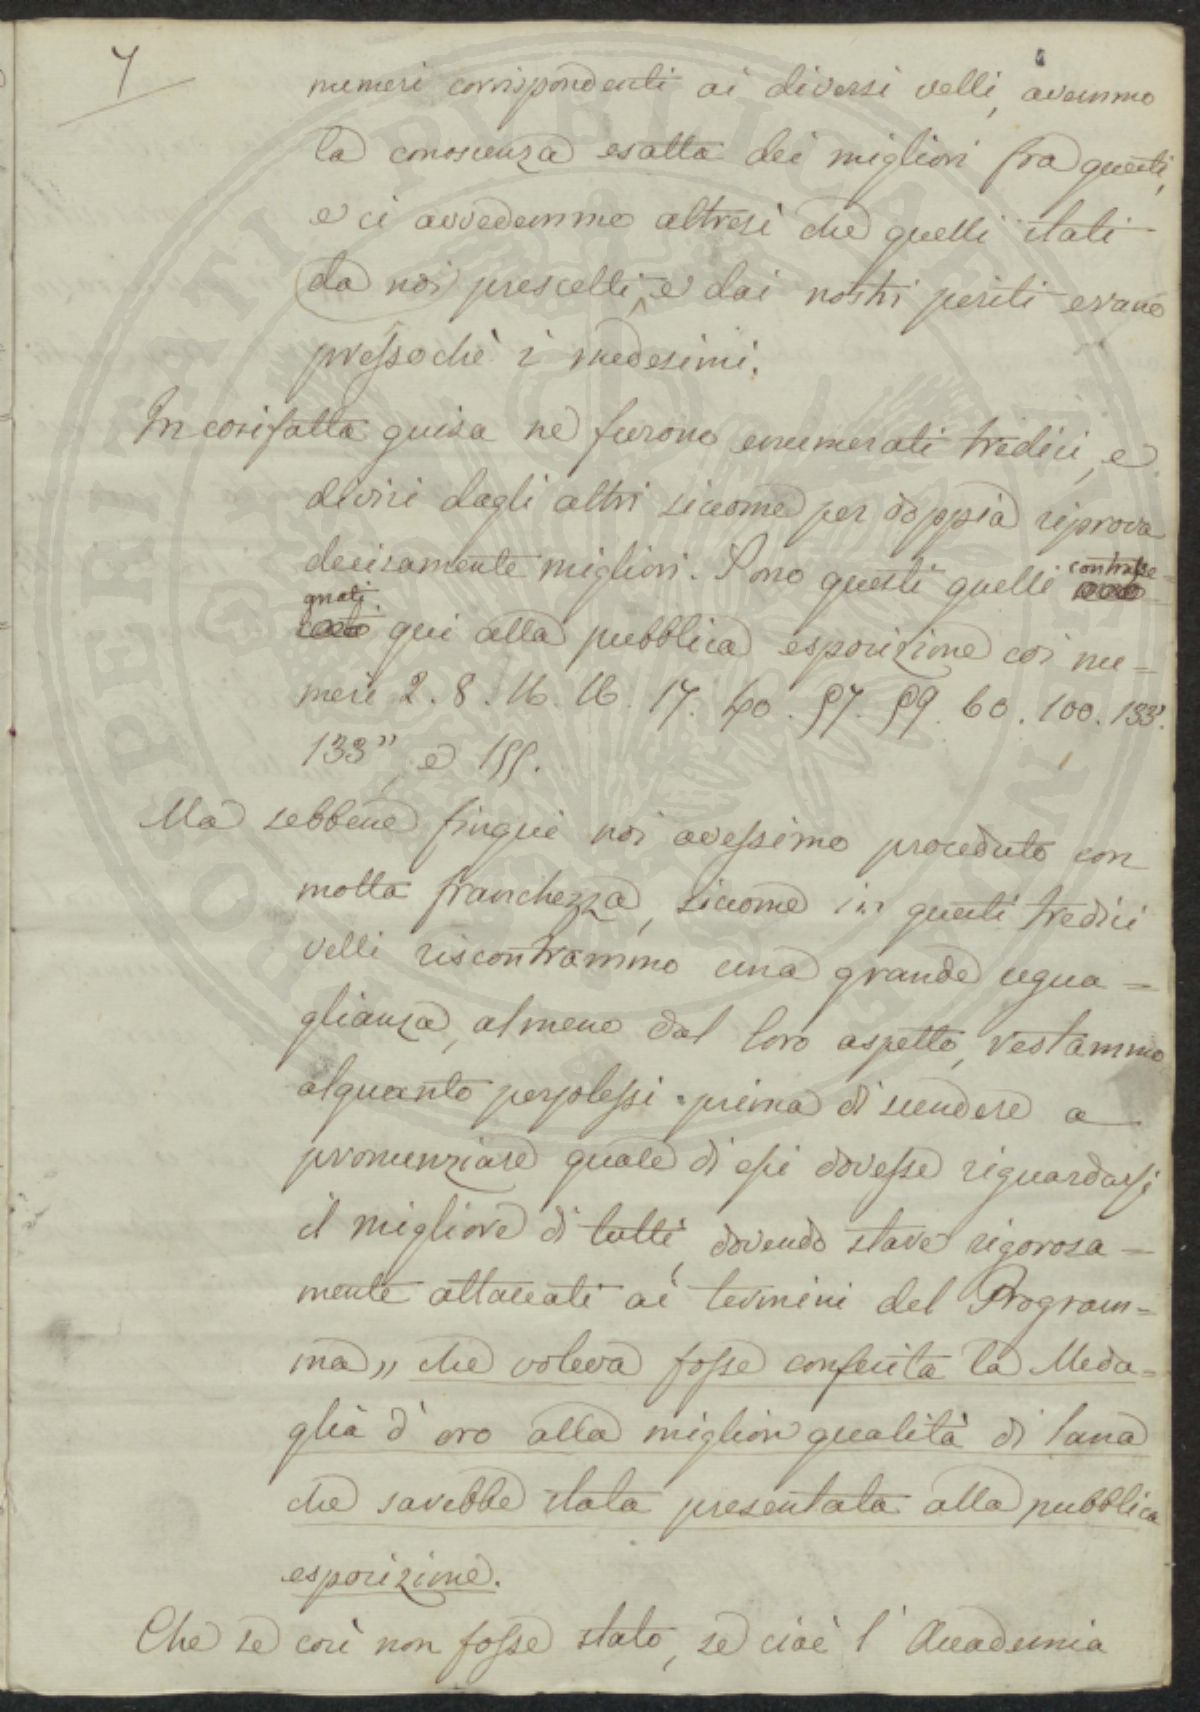 7
numeri corrispondenti ai diversi velli, avemmo
la conoscenza esatta dei migliori fra questi,
e ci avvedemmo altresì che quelli stati
da noi prescelli, e dai nostri periti erano
pressochè i medesimi.
In cosifatta guisa ne furono enumerati tredici, e
divisi dagli altri siccome per doppia riprova
decisamente migliori. Sono questi quelli contrasse=
gnati qui alla pubblica esposizione coi nu=
meri 2. 8. 16. 16. 17. 40. 57. 59. 60. 100. 133'.
133", e 155.
Ma sebbene finqui noi avessimo proceduto con
molta franchezza, siccome in questi tredici
velli riscontrammo una grande ugua=
glianza, almeno dal loro aspetto, restammo
alquanto perplessi prima di scendere a
pronunziare quale di essi dovesse riguardarsi
il migliore di tutti, dovendo stare rigorosa=
mente attaccati ai termini del Program=
ma „ che voleva fosse conferita la Meda=
glia d'oro alla miglior qualità di lana
che sarebbe stata presentata alla pubblica
esposizione.
Che se così non fosse stato, se cioè l'Accademia